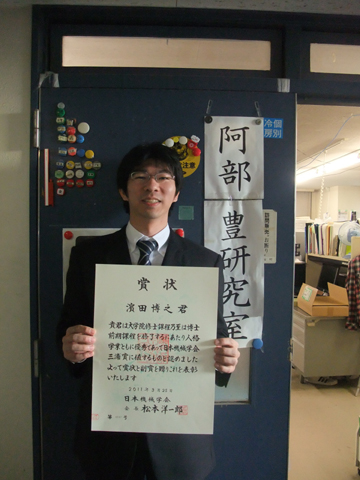 冷房
個別
注意
阿部
豊研究室
賞状
濱田博之君
貴君は大学院修士課程乃至は博士
前期課程を終了するにあたり人格
学業ともに優秀であって日本機械学会
三浦賞に値するものと認めました
よって賞状と副賞を贈りこれを表彰
いたします
日本機械学会
会長 松本洋一郎